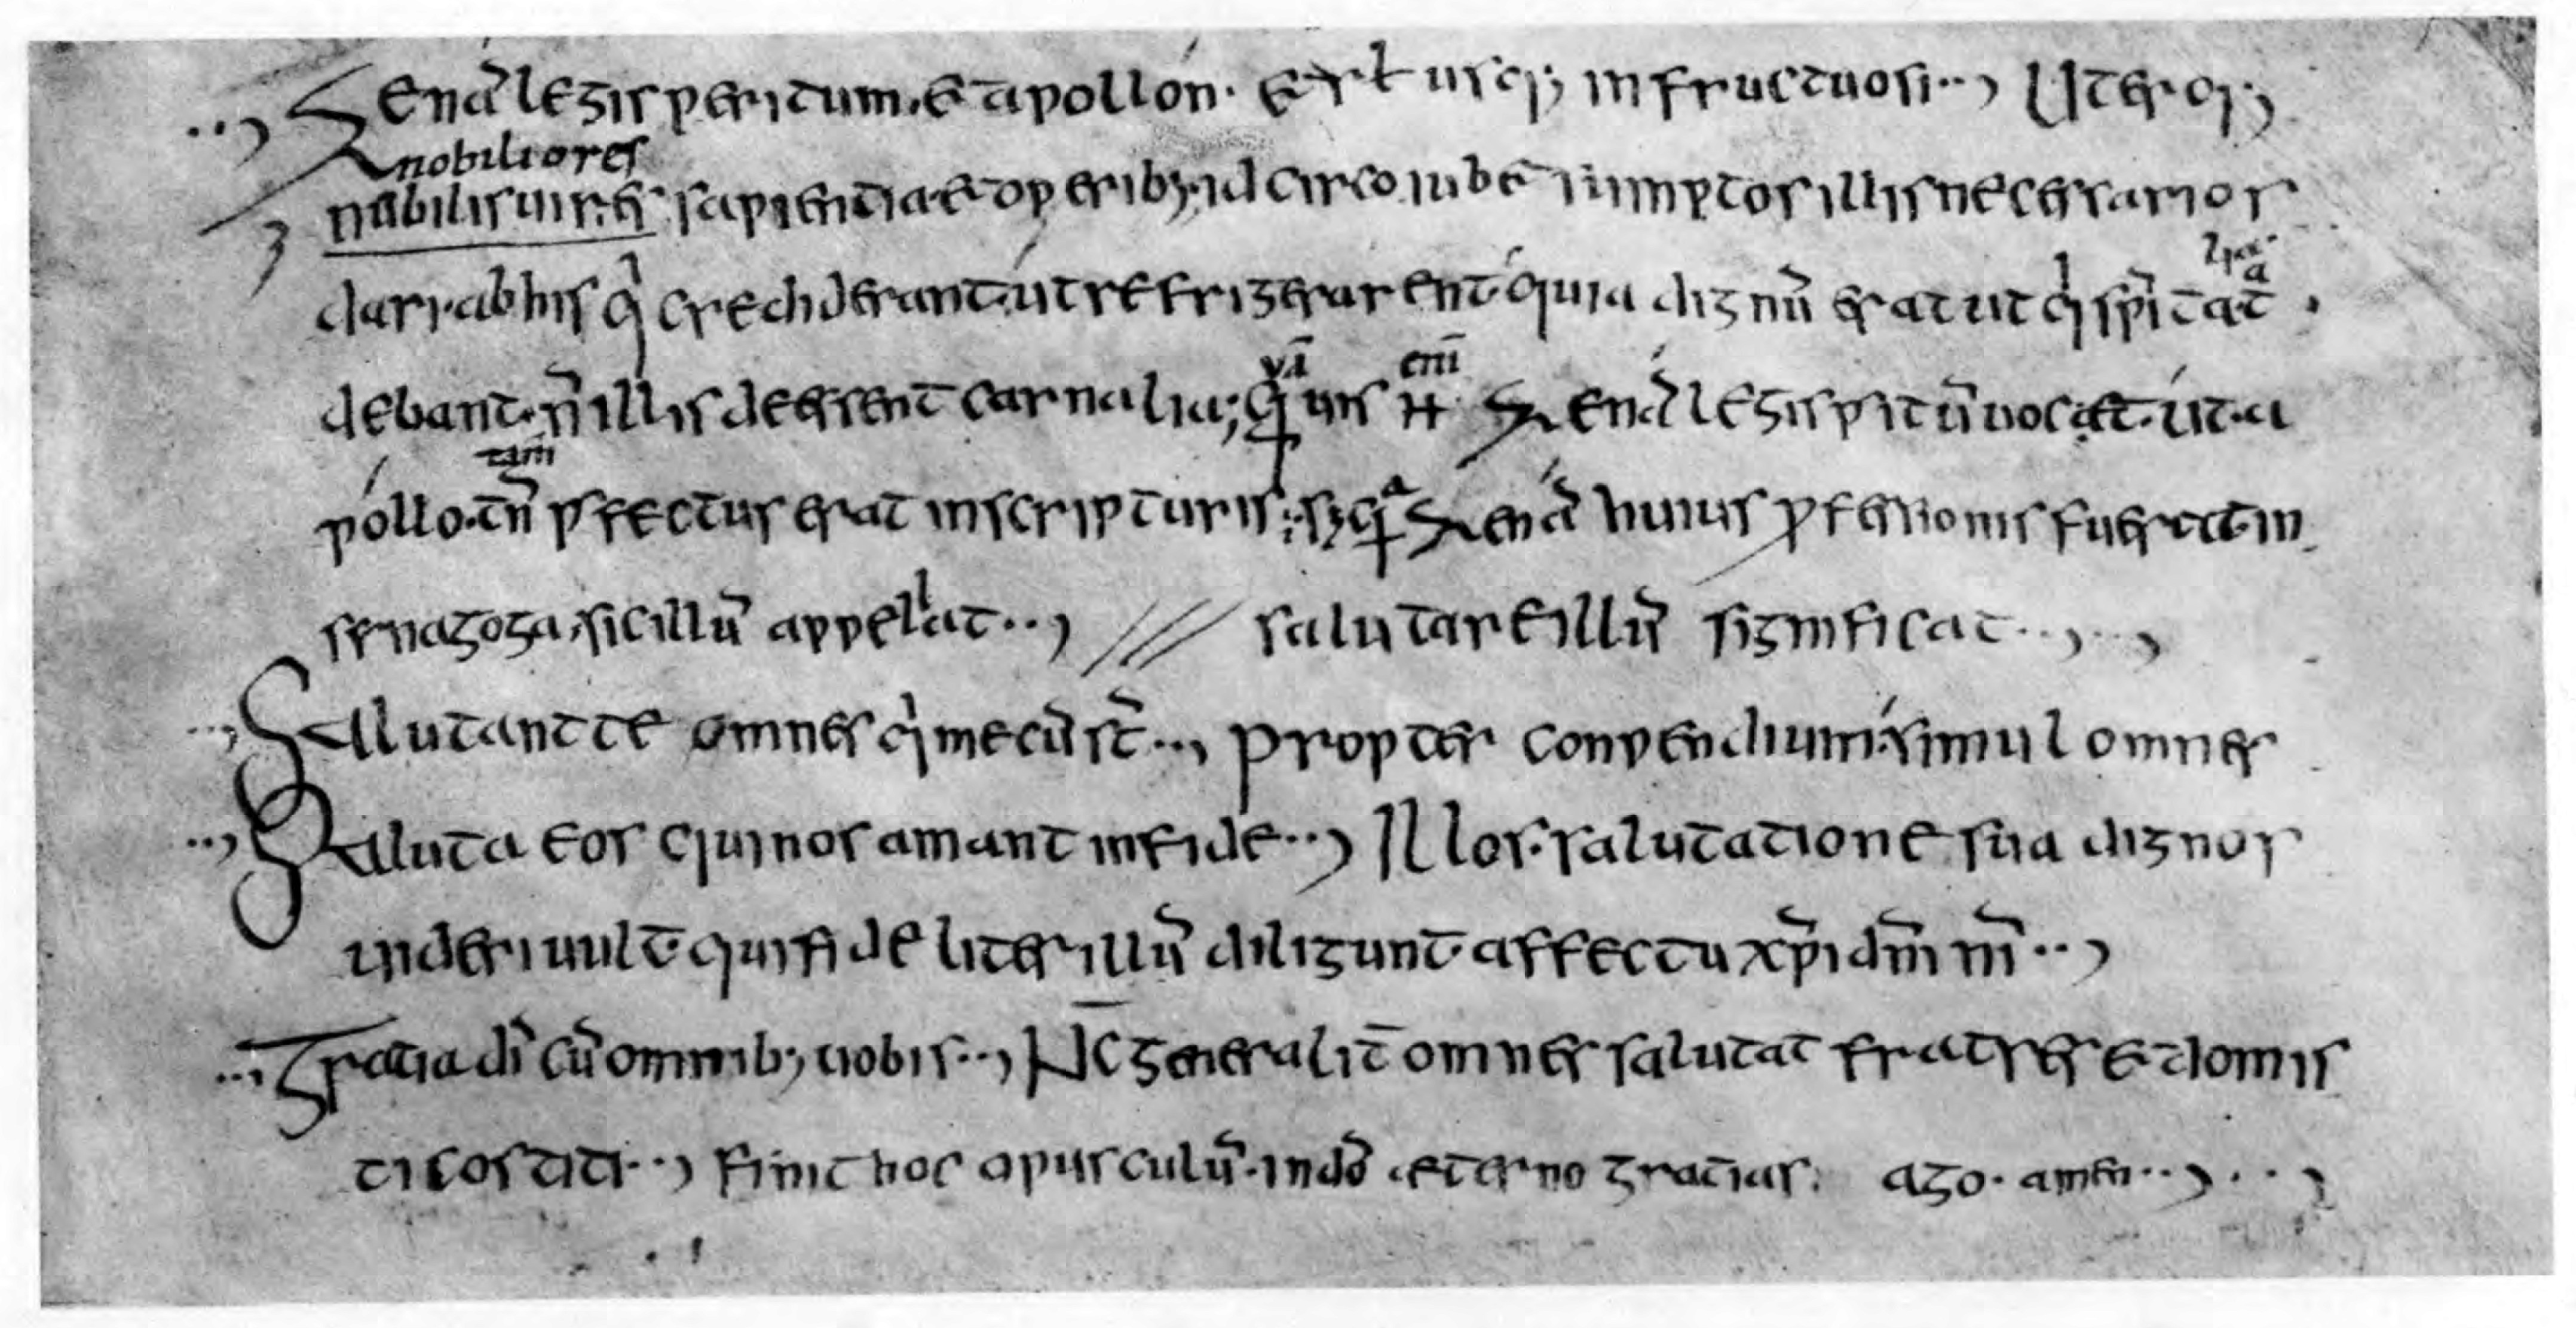 Zenā legis peritum · et apollon · et rł usq; infructuosi ··, Uterq;,
nobiliores
nobilis uir · es sapientia et operib; · id circo iubē sumptos illis necessarios
dari · ab his q crediderant · ut refrigerarent · quia dignū erat ut q spitāt
debant · n̄ illis deessent carnalia; quis enī Zenā legis pitū uocat · ut · a
tam̄
pollo · tn̄ pfectus erat in scripturis ; sz qa Zenā huius pfessionis fuerat · in
senagoga, sic illū appellat ··, salutare illū significat ··,··,
Sallutant te omnes q mecū st̄ ··, Propter conpendium · simul omnes
Saluta eos qui nos amant in fide ··, Illos · salutatione sua dignos
uideri uult · qui fideliter illū diligunt · affectu xp̄i dn̄i nr̄i ··,
··, Gratia dī cū omnib; uobis ··, Nc̄ generalit̄ omnes salutat fratres et domis
ticos titi ··, Finit hoc opusculū · in dō æterno gratias ago · amen ··, ··,